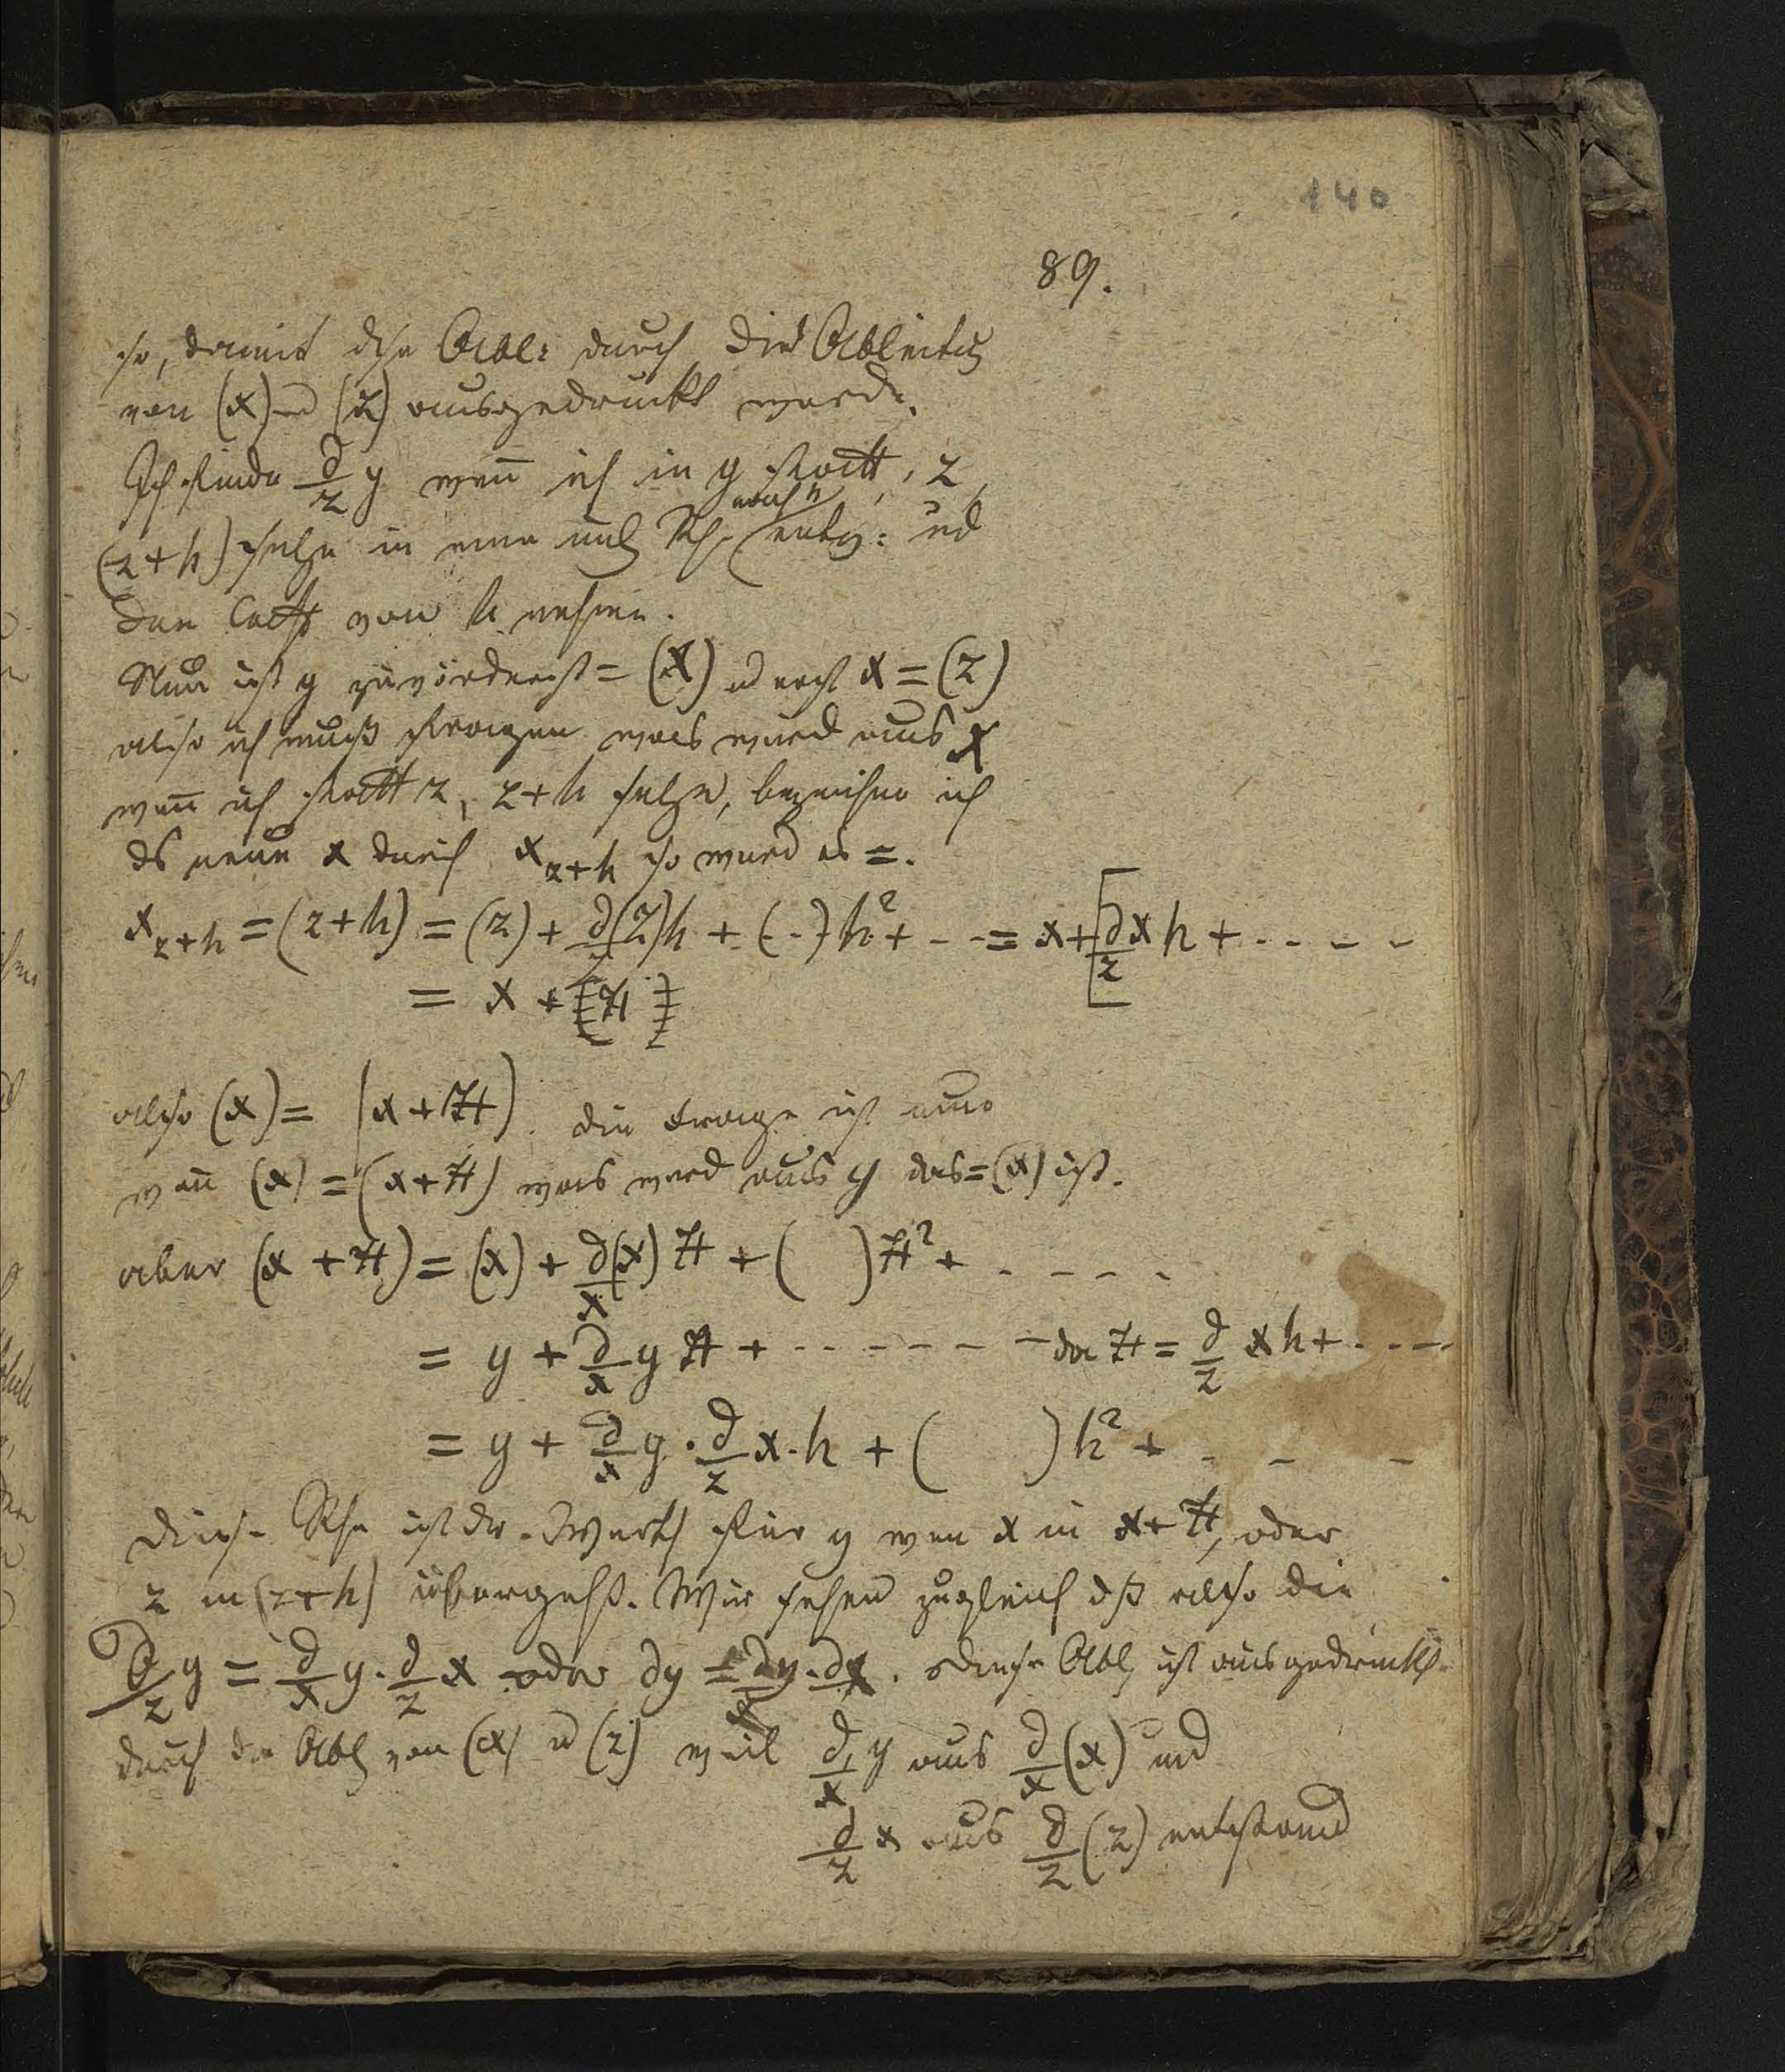 140
89.
so, damit dse Abl: durch die Ableitg
von (x) und (z) ausgedruckt werde.
Ich finde d/z y wen̄ ich in y statt, z
nach h
(z+h) setze in eine unendl Rh. entw: und
den Coeff von h nehme.
Nun ist y zuvörderst = (x) und erst x = (z)
also ich muß fragen was wird aus x
wen̄ ich statt z, z+h setze, bezeichne ich
ds neue x durch x_{z+h} so wird es =.
x_{z+h} = (z+h) = (z) + d/z (z) h + (..) h² + - - = x + [d/z x h + - - - -
= x + [H]
also (x) = (x+H). die Frage ist nun
wen̄ (x) = (x+H) was wird aus y das = (x) ist.
aber (x + H) = (x) + d/x (x) H + ( ) H² + - - - -
= y + d/x y H + - - - - - - da H = d/z x h + - - - -
= y + d/x y . d/z x . h + ( ) h² + - - -
Diese Rhe ist der Werth für y wen x in x+H, oder
z in (z+h) übergeht. Wir sehen zugleich dß also die
d/z y = d/x y . d/z x oder dy = dy . dx. diese Abl ist ausgedruckt
durch die Abl von (x) u (z) weil d/x y aus d/x (x) und
d/z x aus d/z (z) entstand